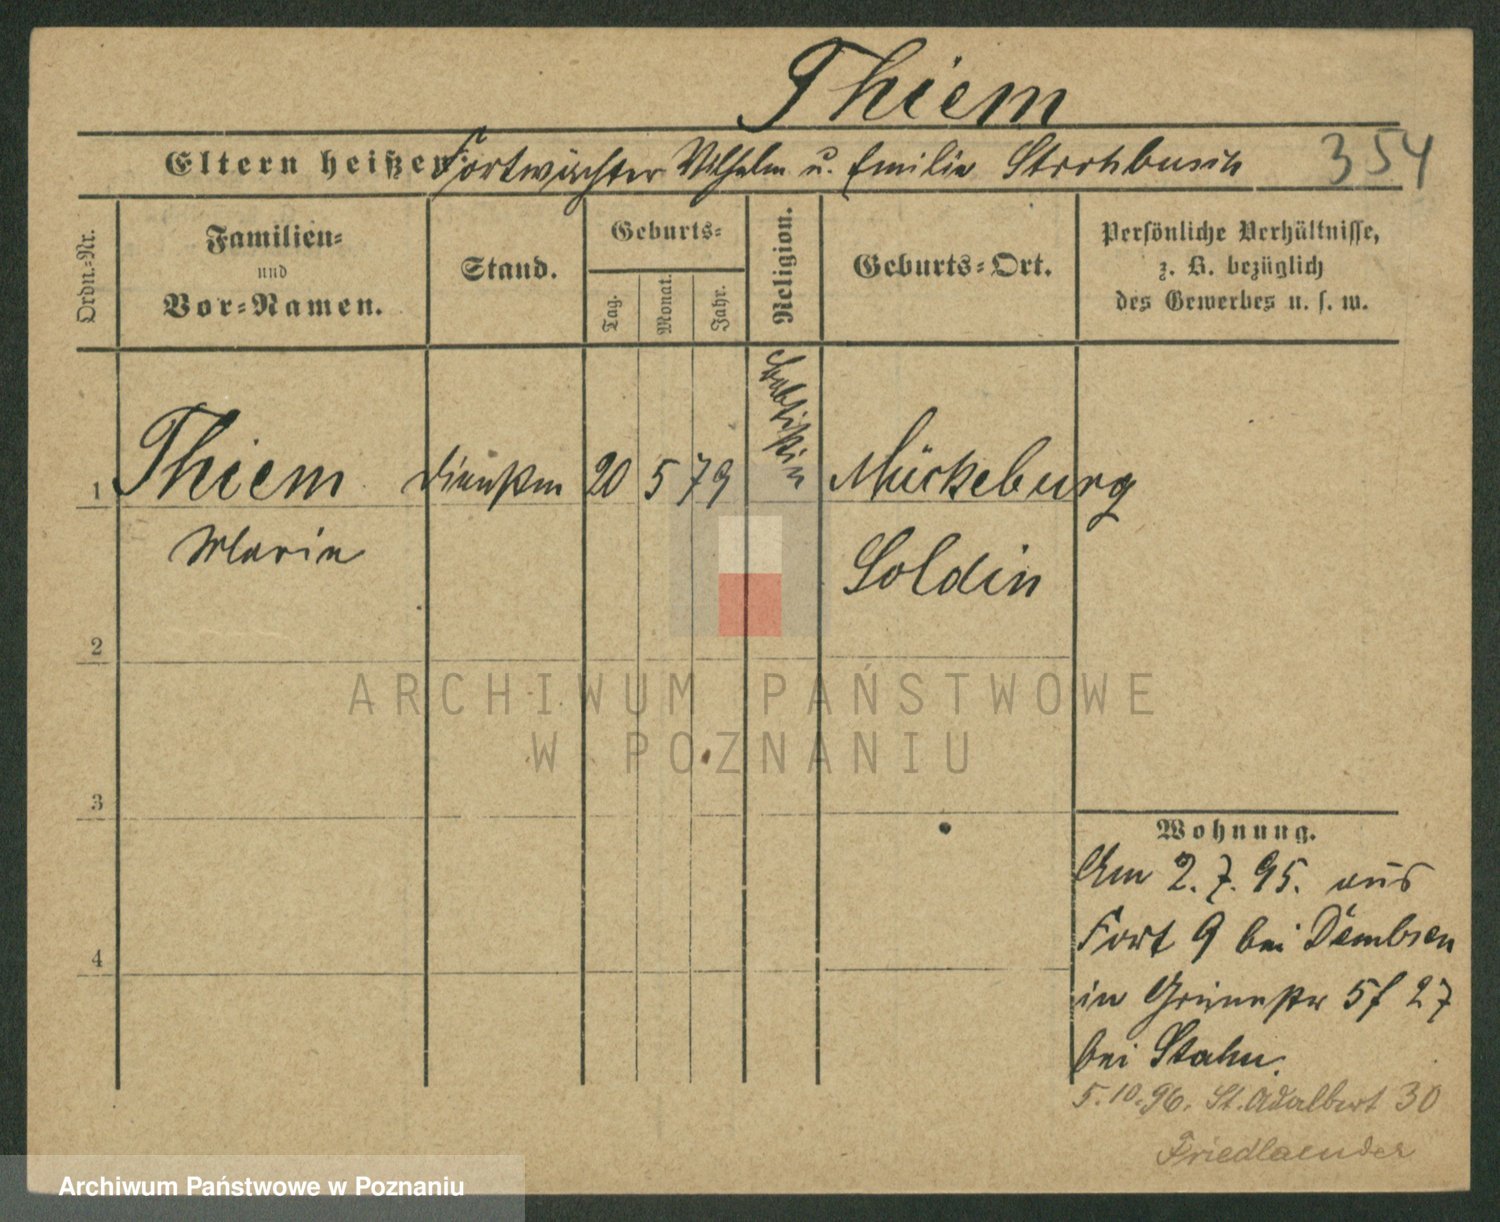 Thiem
Eltern heißen Fortwächter Wilhelm u. Emilie Strohbusch
354
Ordn.-Nr.
Familien-
und
Vor-Namen.
Stand.
Geburts-
Tag.
Monat.
Jahr.
Religion.
Geburts-Ort.
Persönliche Verhältnisse,
z. B. bezüglich
des Gewerbes u. s. w.
1 Thiem Dienstm 20 5 79 Mückeburg
Marie Soldin
2
3
4
Wohnung.
Am 2.7.95. aus
Fort 9 bei Dembsen
in Grünestr 5f 27
bei Stahn.
5.10.96. St. Adalbert 30
Friedlaender
ARCHIWUM PAŃSTWOWE
W POZNANIU
Archiwum Państwowe w Poznaniu